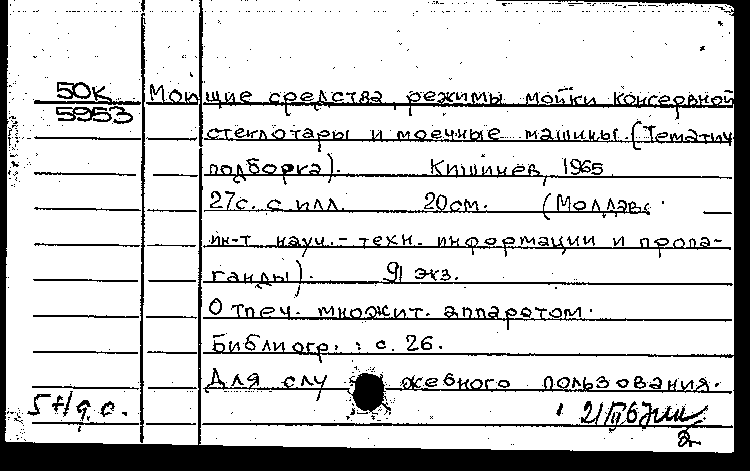 50К Моющие средства, режимы мойки консервной
5953 стеклотары и моечные машины. (Тематич
подборка). Кишинев, 1965
27с. с илл. 20см. (Молдавс
ин-т науч.-техн. информации и пропа-
ганды). 91 экз.
Отпеч. множит. аппаратом.
Библиогр.: с. 26.
Для служебного пользования.